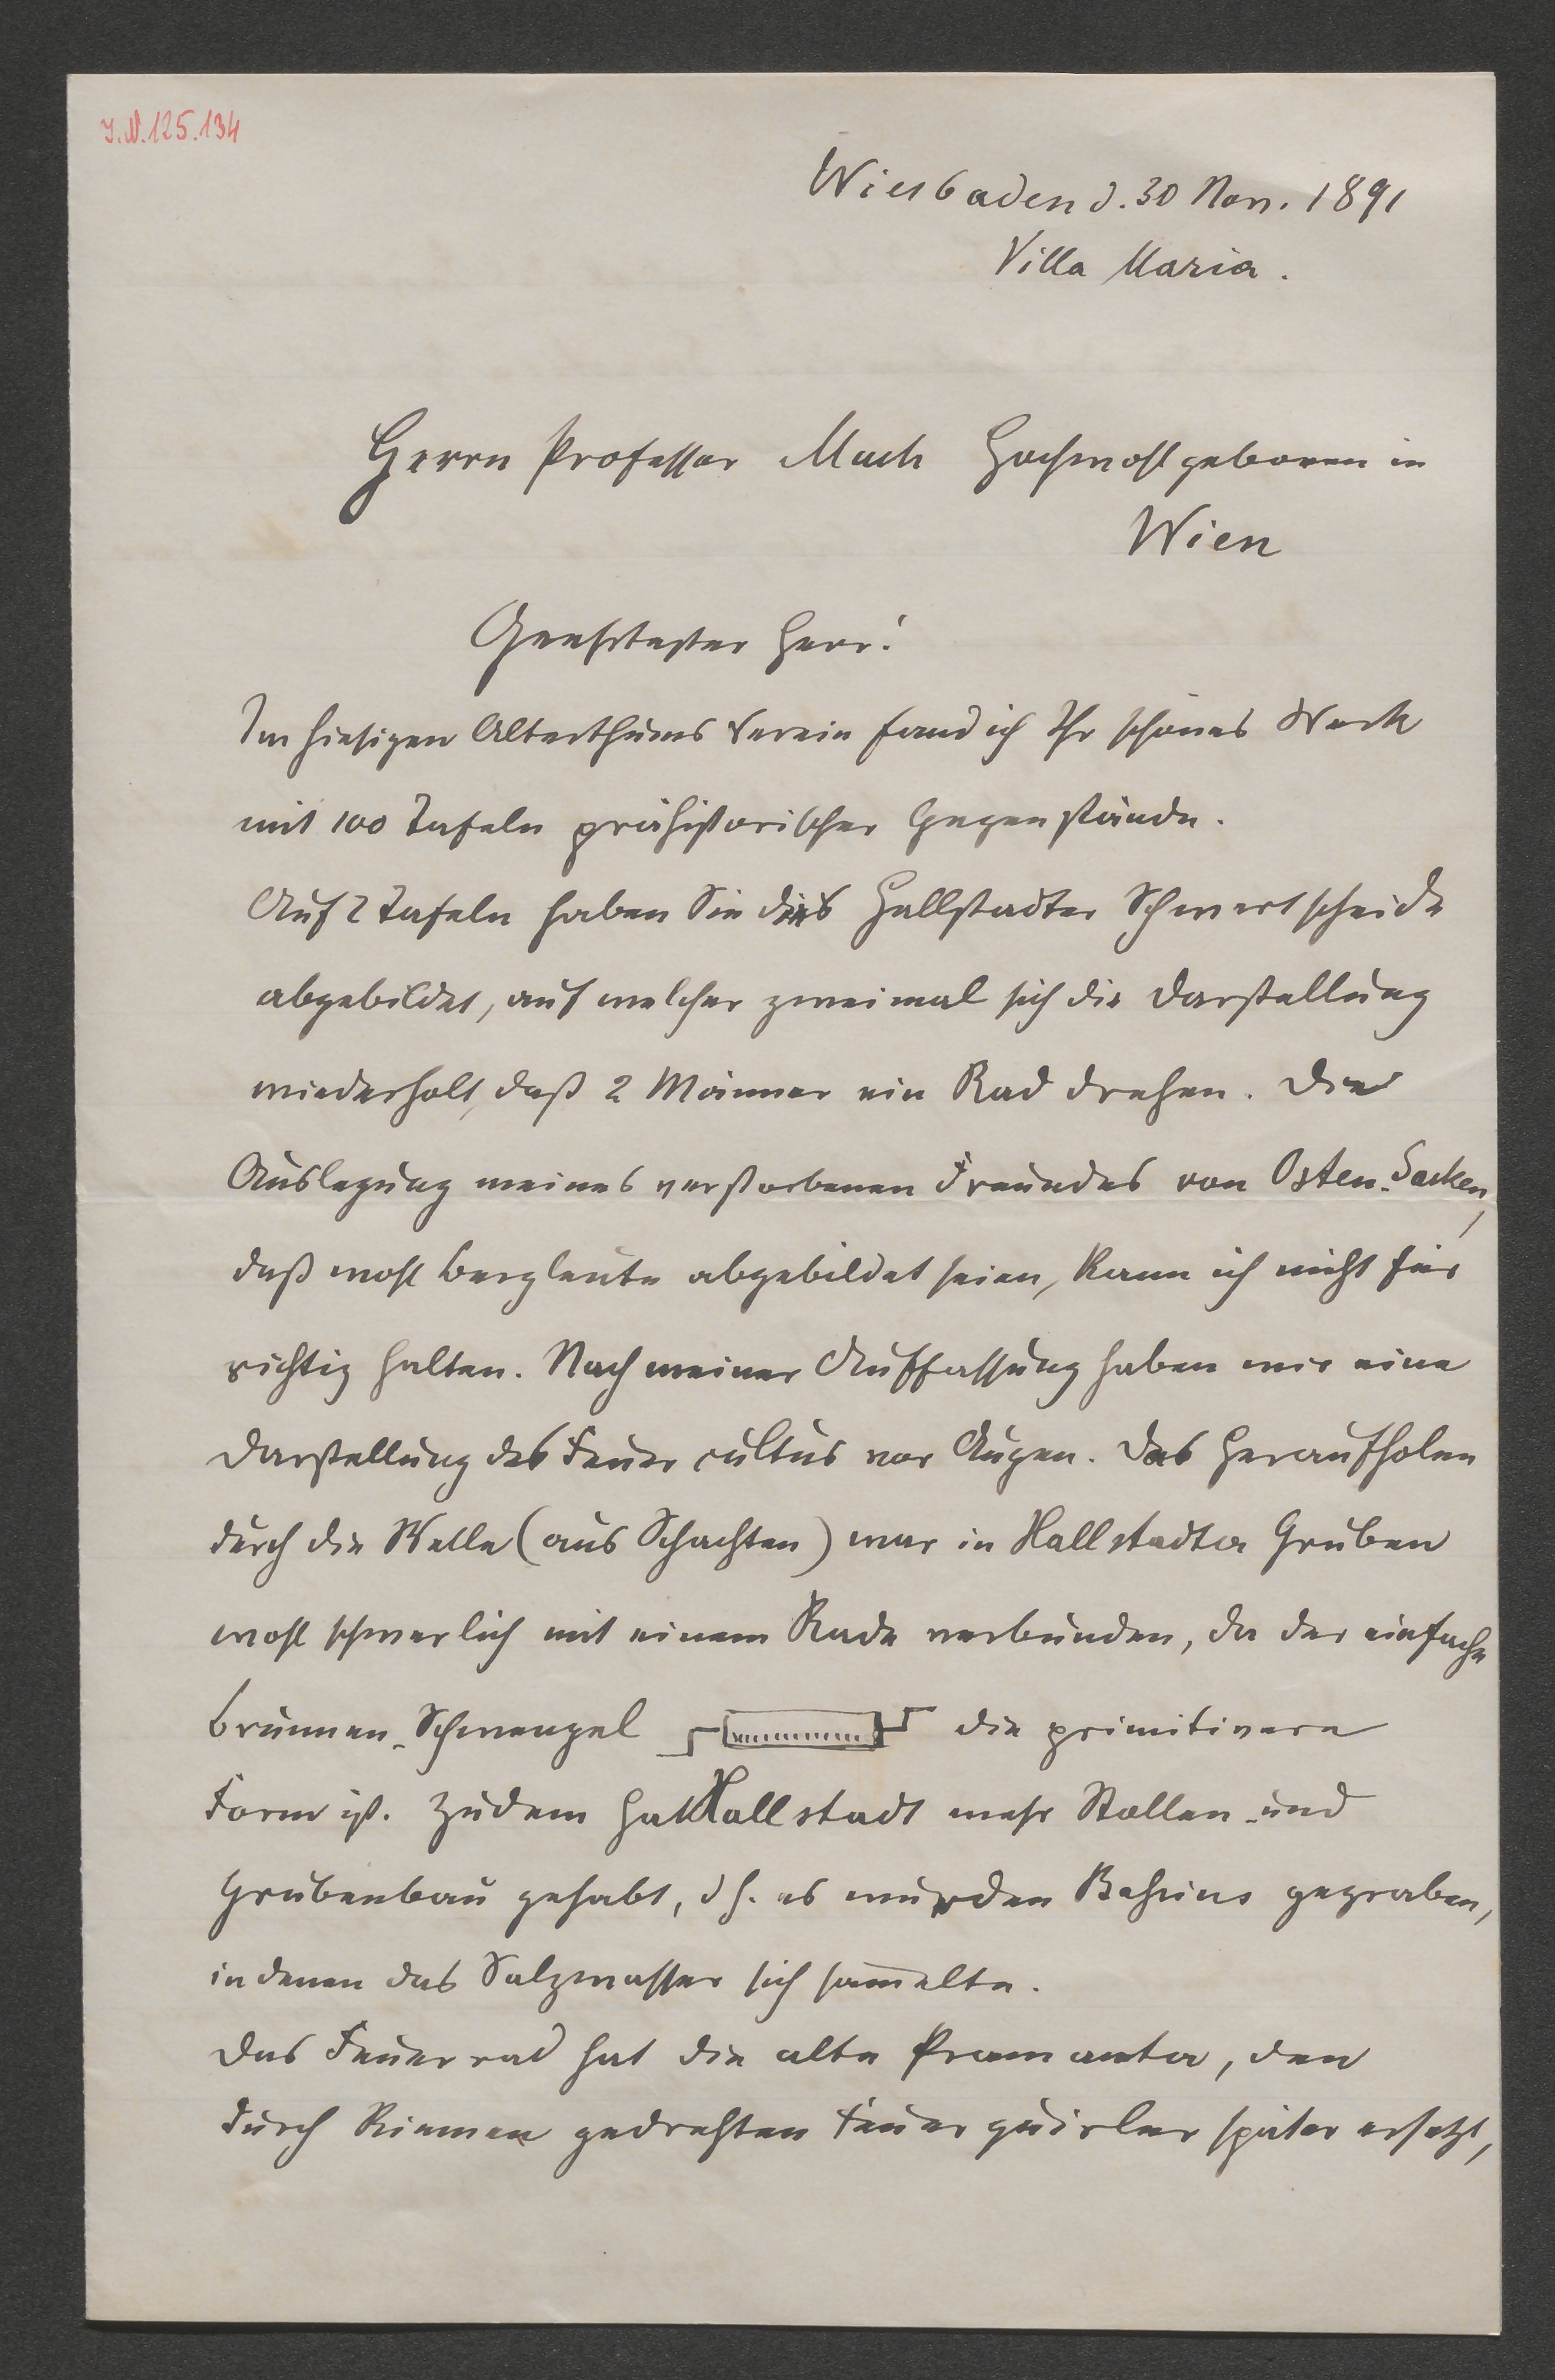 J.N.125.134
Wiesbaden d. 30 Nov. 1891
Villa Maria.
Herrn Professor Much Hochwohlgeboren in
Wien
Geehrtester Herr!
Im hiesigen Alterthums Verein fand ich Ihr schönes Werk
mit 100 Tafeln prähistorischer Gegenstände.
Auf 2 Tafeln haben Sie die Hallstadter Schwertscheide
abgebildet, auf welcher zweimal sich die Darstellung
wiederholt, daß 2 Männer ein Rad drehen. Die
Auslegung meines verstorbenen Freundes von Osten-Sacken,
daß wohl Bergleute abgebildet seien, kann ich nicht für
richtig halten. Nach meiner Auffassung haben wir eine
Darstellung des Feuer cultus vor Augen. Das Heraufholen
durch die Welle (aus Schachten) war in Hallstadter Gruben
wohl schwerlich mit einem Rade verbunden, da der einfache
Brunnen-Schwengel die primitivere
Form ist. Zudem hat Hallstadt mehr Stollen- und
Grubenbau gehabt, d h. es wurden Bassins gegraben,
in denen das Salzwasser sich sam̅elte.
Das Feuerrad hat die alte Pramanta, den
durch Riemen gedrehten Feuerquirler später ersetzt,